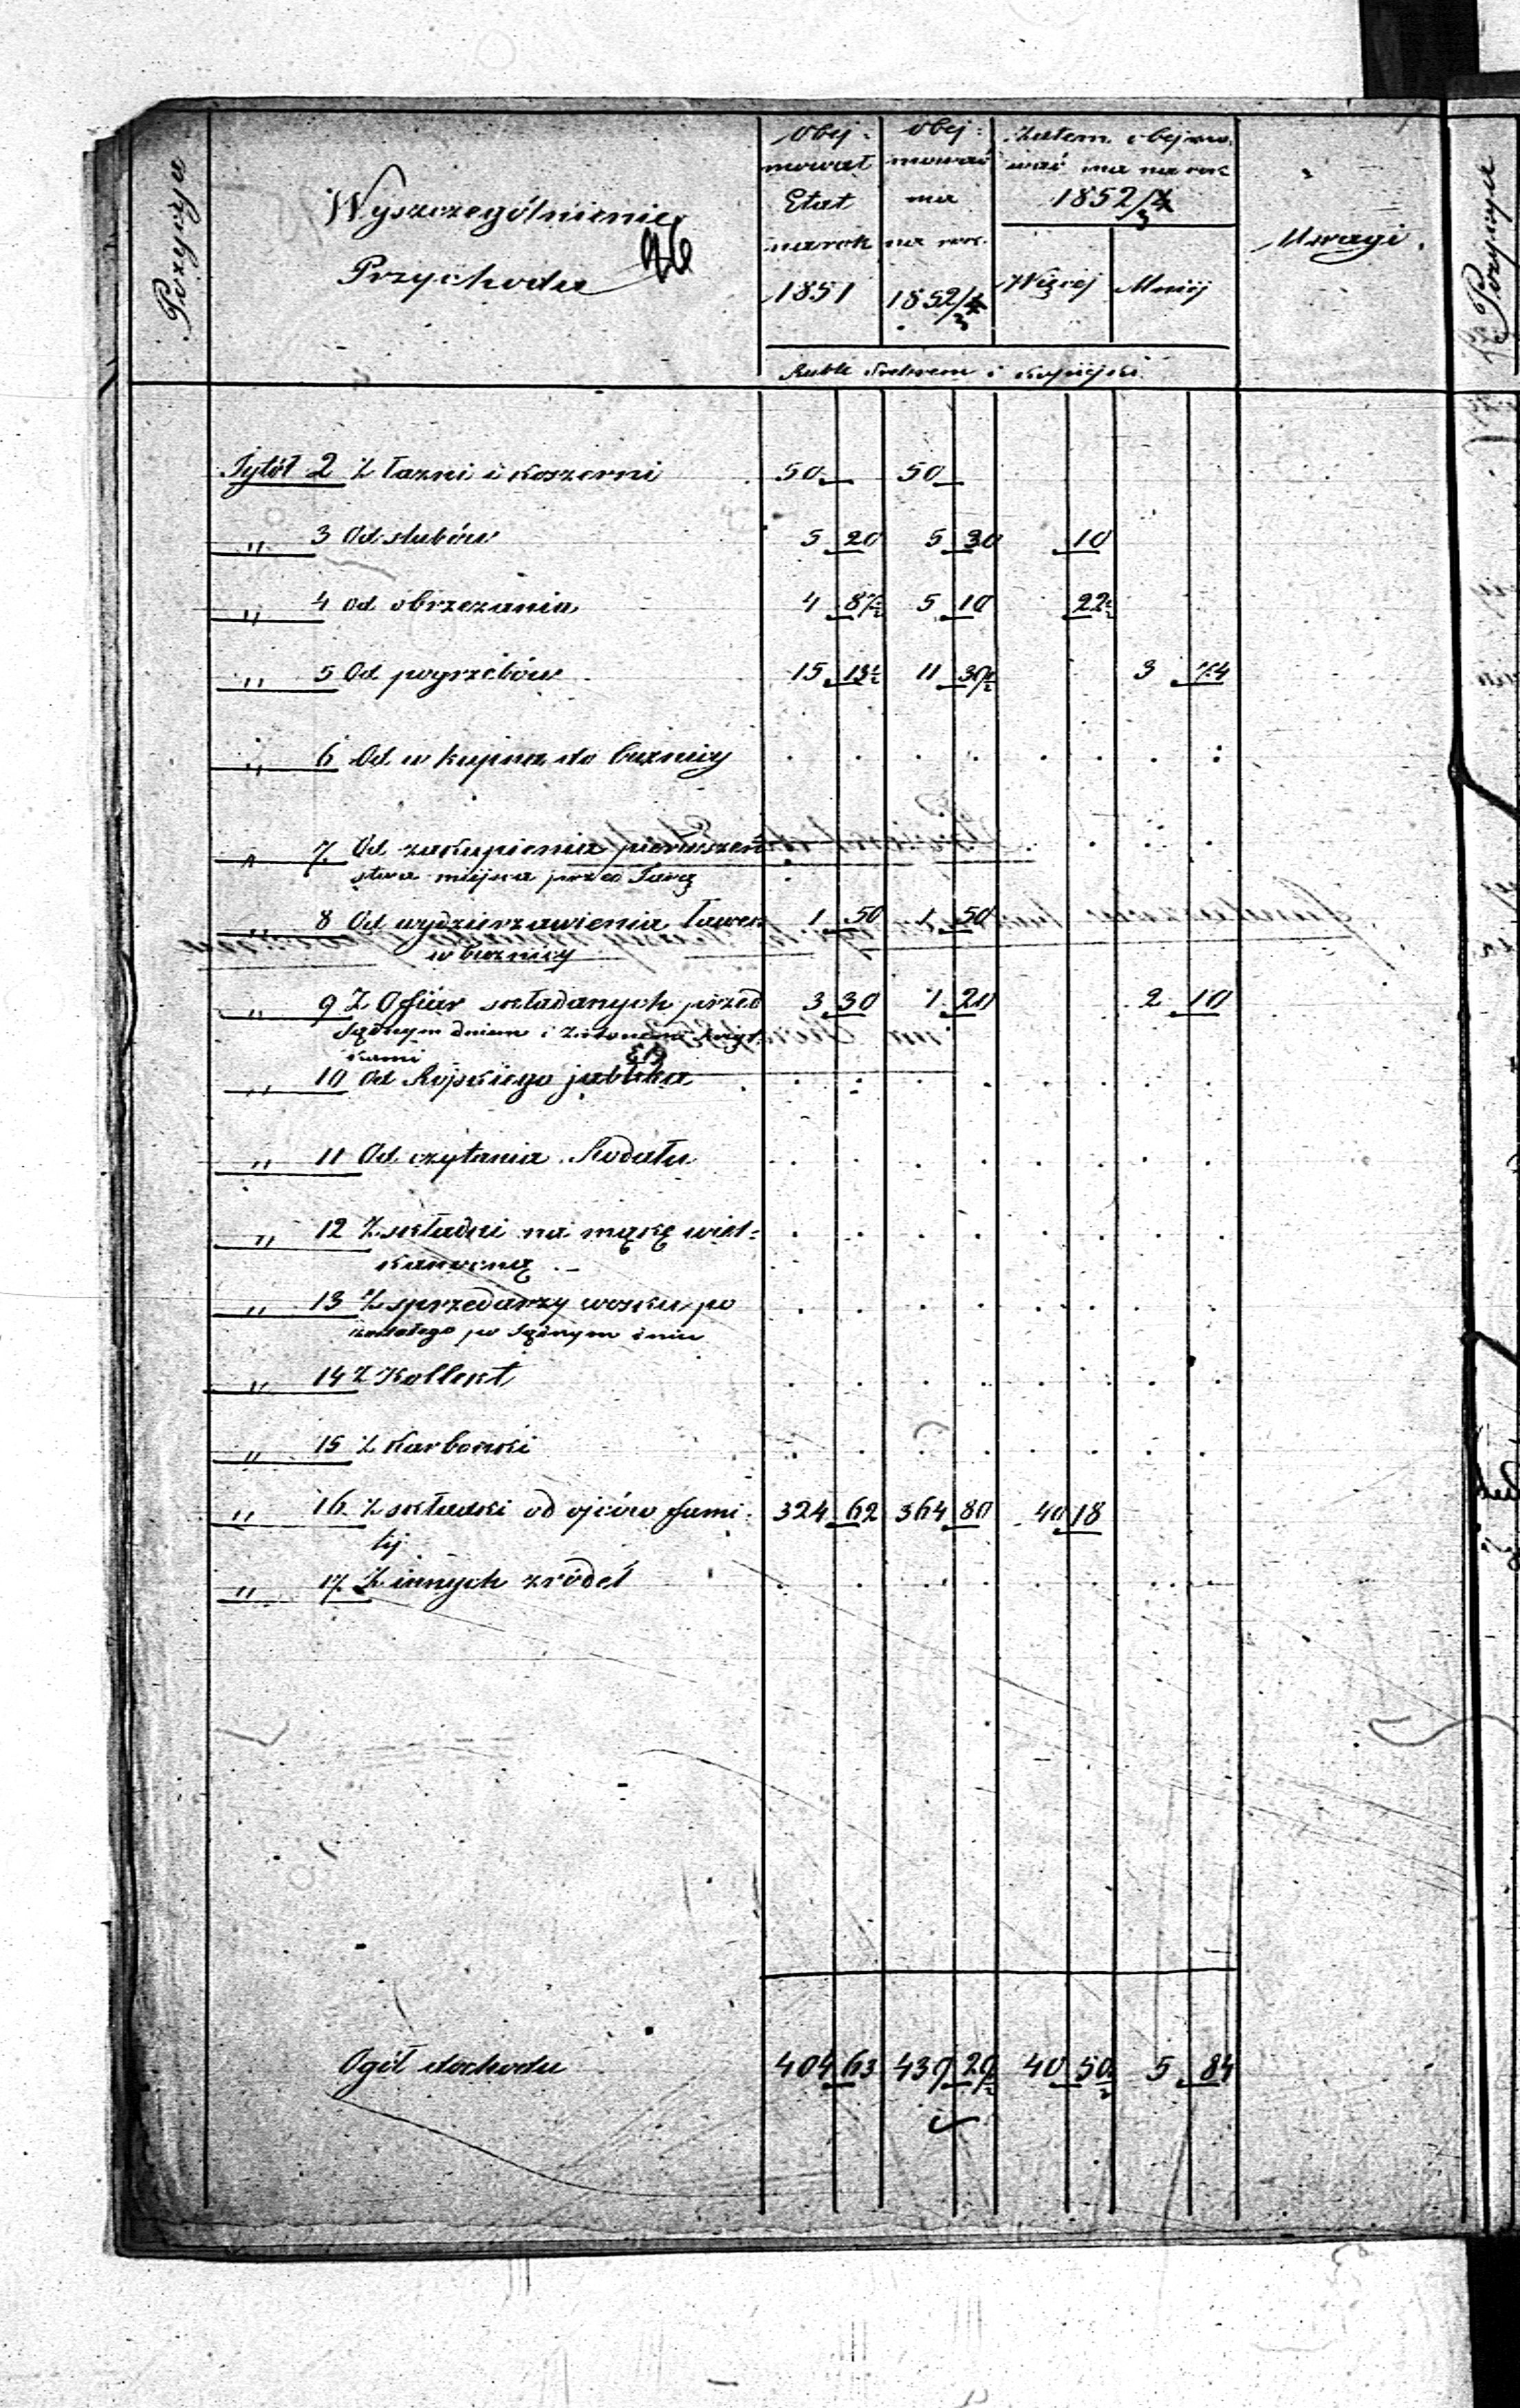 Pozycya
Wyszczególnienie
Przychodu
96
Obej-
mował
Etat
na rok
1851
obej-
mować
ma
na rok
1852/3
Zatem obejmo-
wać ma na rok
1852/3
Więcej Mniej
Uwagi.
Rubli Srebrem i kopiejki.
Tytół 2 Z łazni i koszerni 50 — 50 —
" 3 Od slubów 5 20 5 30 10
" 4 od obrzezania 4 87½ 5 10 22½
" 5 Od pogrzebów 15 13½ 11 39½ 3 74
" 6 Od wkupna do buznicy
" 7. Od zakupienia pierwszeń-
stwa miejsca przed Torą
" 8 Od wydzierzawienia ławek 1 50 1 50
w buznicy
" 9 Z Ofiar składanych przed 3 30 1 20 2 10
Sądnym dniem i Zielonemi Swiąt-
kami
" 10 Od Rajskiego jabłka
" 11 Od czytania Rodału
" 12 Z składki na mąkę wiel-
kanocną
" 13 Z sprzedarzy wosku po
zostałego po Sądnym dniu
" 14 Z Kollekt
" 15 Z Karbonki
" 16. Z składki od ojców fami- 324 62 364 80 40 18
lij
" 17. Z innych zródeł
Ogół dochodu 404 63 439 29½ 40 50½ 5 84
Pozycya